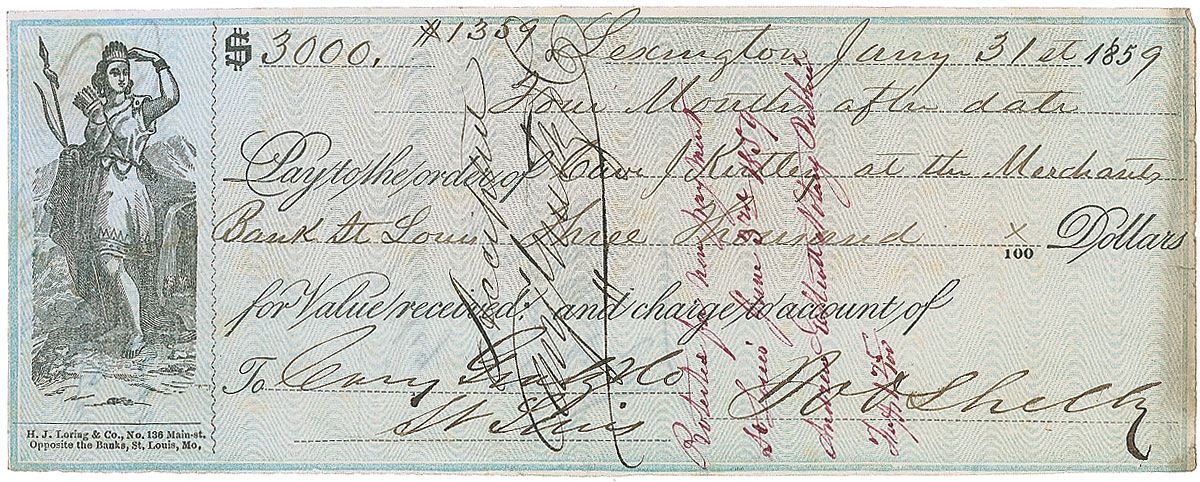 $ 3000. #1359 Lexington Jany 31st 1859
Four Months after date
Pay to the order of J Kirtley at the Merchants
Bank St Louis three thousand x/100 Dollars
for Value received: and charge to account of
To Cary Gratz & Co
St Louis
Jo O Shelby
Accepted
Cary Gratz & Co
Protested for non payment
St Louis June 3rd 1859
Notary Public
H. J. Loring & Co., No. 136 Main-st.
Opposite the Banks, St. Louis, Mo,